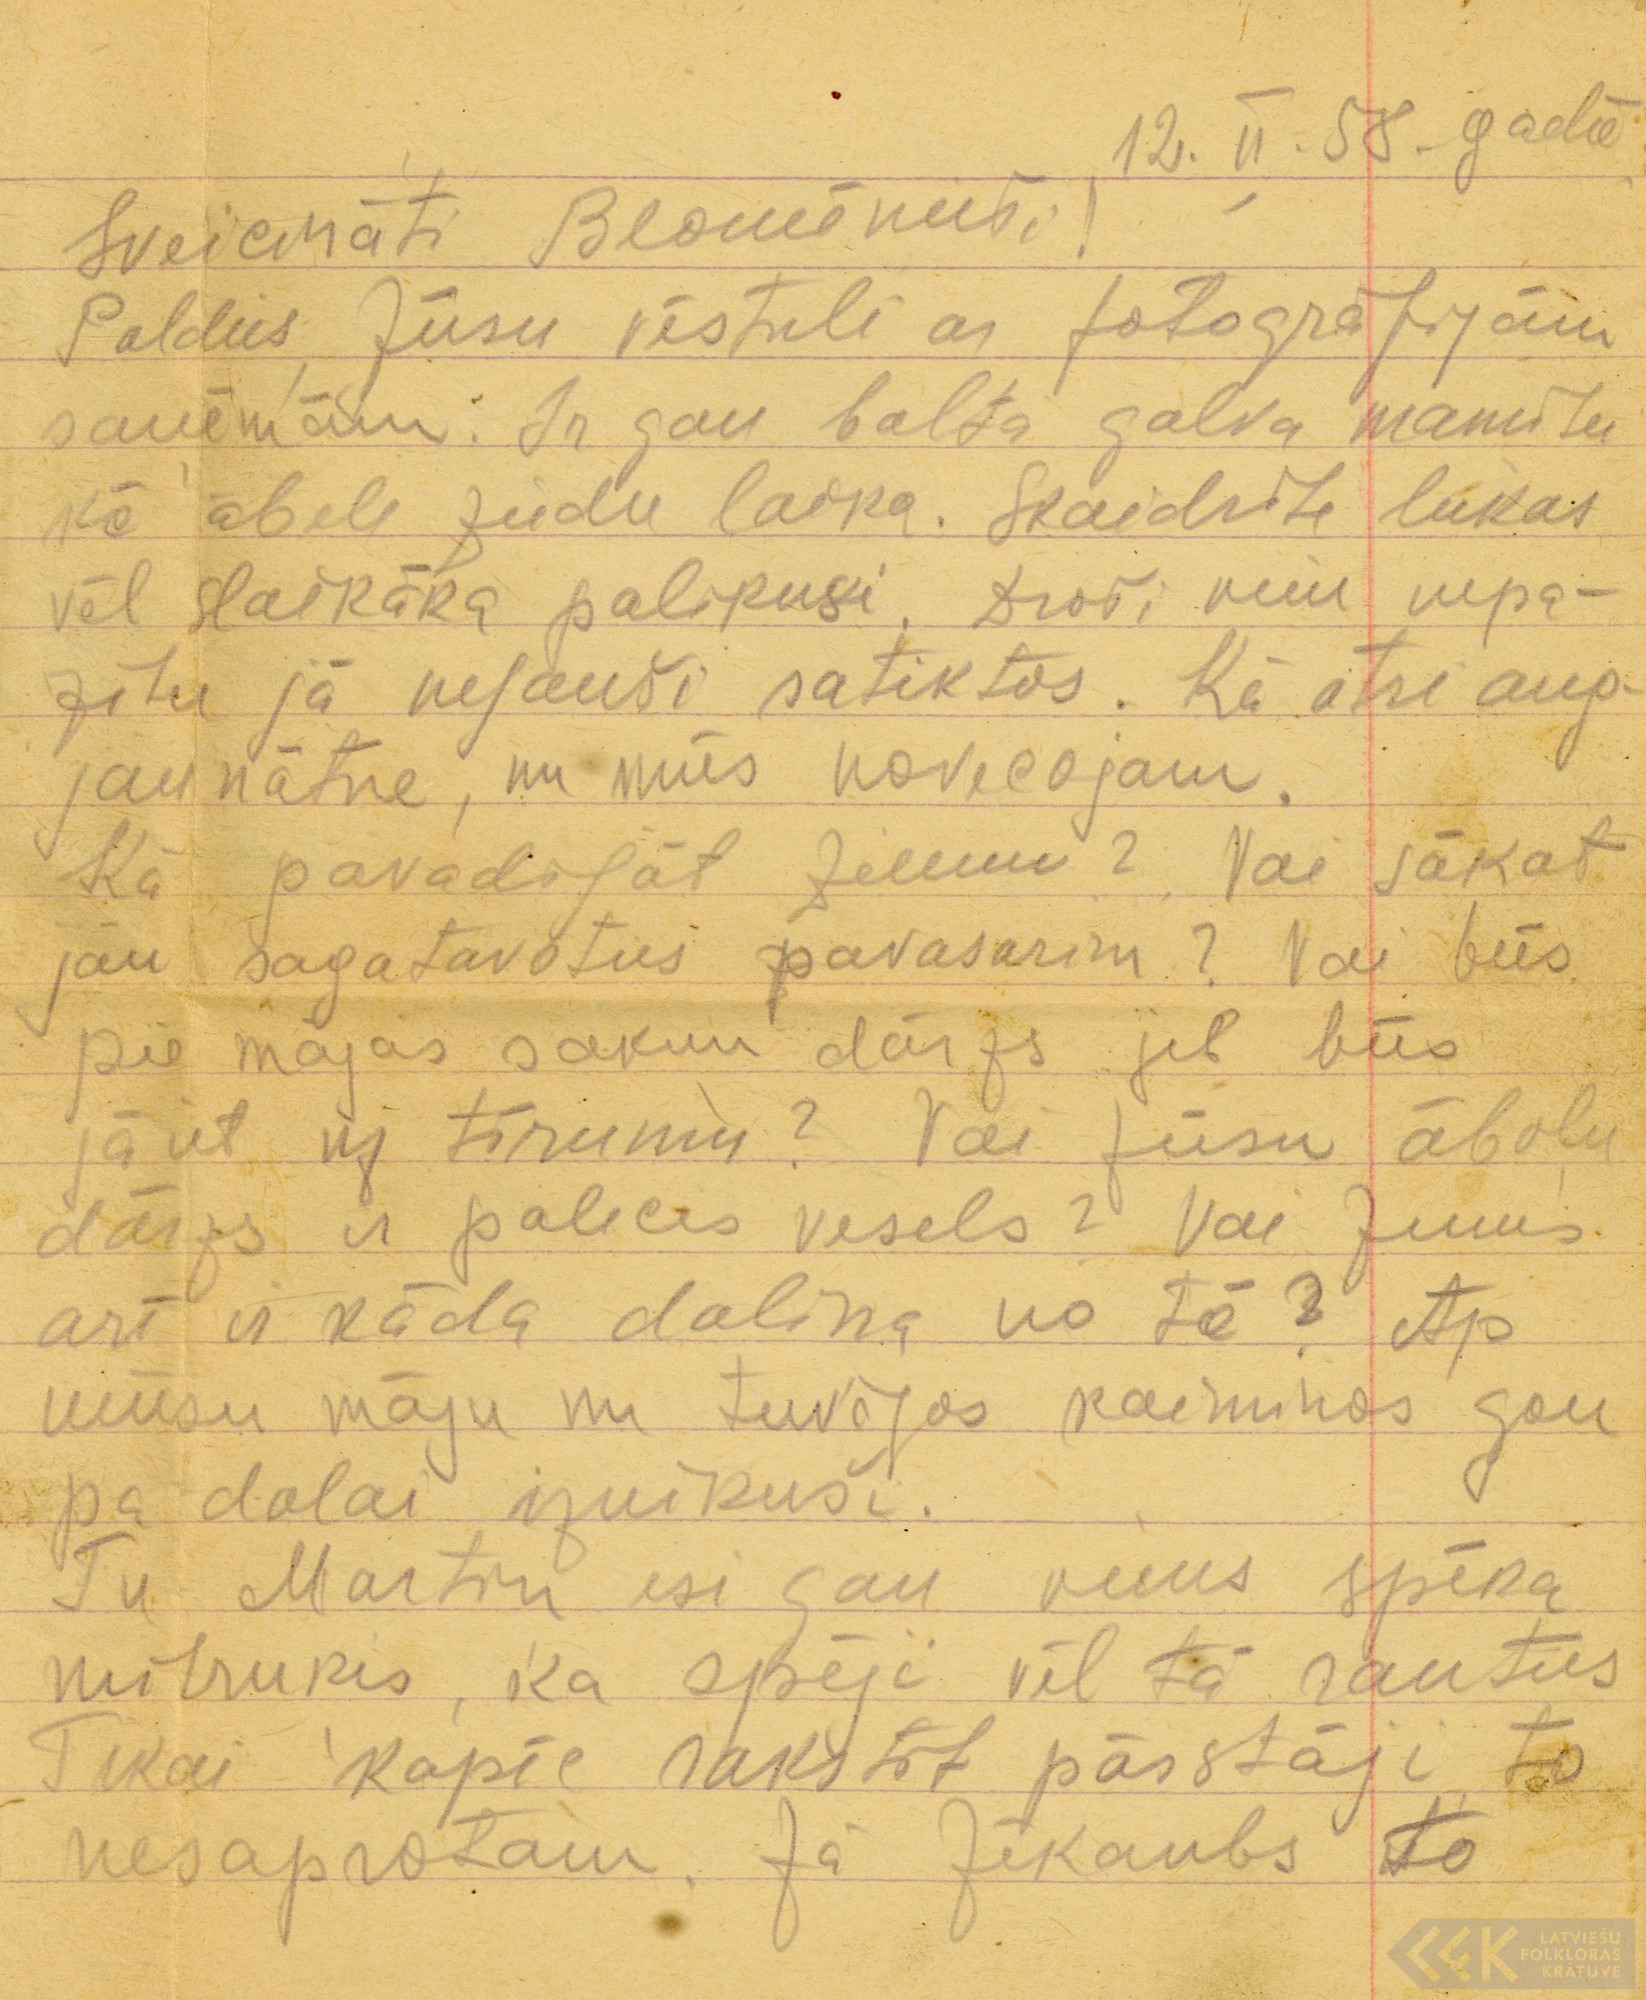 12. II. 58. gadā
Sveicināti Blomēniņi!
Paldies, Jūsu vēstuli ar fotogrāfijām
saņēmām. Ir gan balta galva mamiņu
kā ābele ziedu laika. Skaidrīte liekas
vēl slaikāka palikusi. Droši vien nepa-
zītu jā nejauši satiktos. Kā ātri aug
jaunātne, un mēs novecojam.
Kā pavadījāt ziemu? Vai sākat
jau sagatavoties pavasarim? Vai būs
pie mājas sakņu dārzs jeb būs
jāiet uz tīrumu? Vai Jūsu ābolu
dārzs ir palicis vesels? Vai Jums
arī ir kāda daliņa no tā? Ap
mūsu māju un tuvējos kaimiņos gan
pa daļai iznīkuši.
Tu Martiņ esi gan viens spēka
mitrukis, ka spēji vēl tā rauties
Tikai kapēc rakstīt pārstāji to
nesaprotam. Jā Jēkaubs to
LATVIEŠU
FOLKLORAS
KRĀTUVE